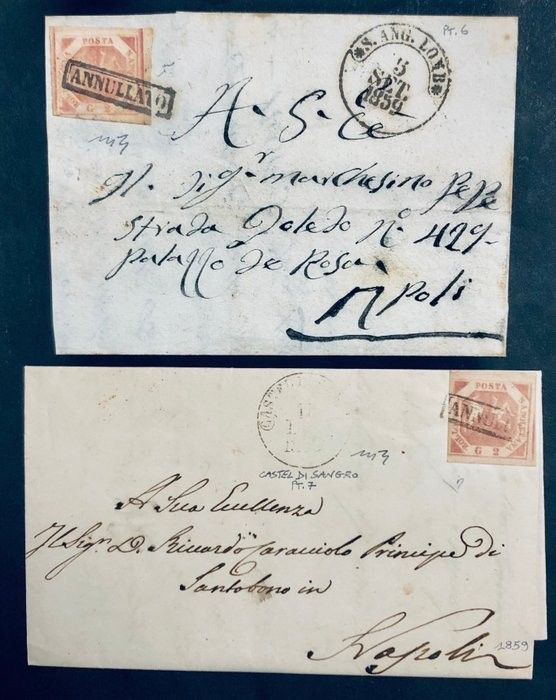 POSTA
G 2
ANNULLATO
*S. ANG. LOMB*
3
SET.
1859
Pt. 6
A. S. E.
Il Sig.r marchesino Pepe
Strada Toledo N° 429-
Palazzo de Rosa
Npoli
CASTEL
POSTA
NAPOLETANA
BOLLO
G 2
ANNULL
CASTEL DI SANGRO
PT. 7
A Sua Eccellenza
Il Sig.r D. Riccardo Caracciolo Principe di
Santobono in
Napoli
1859